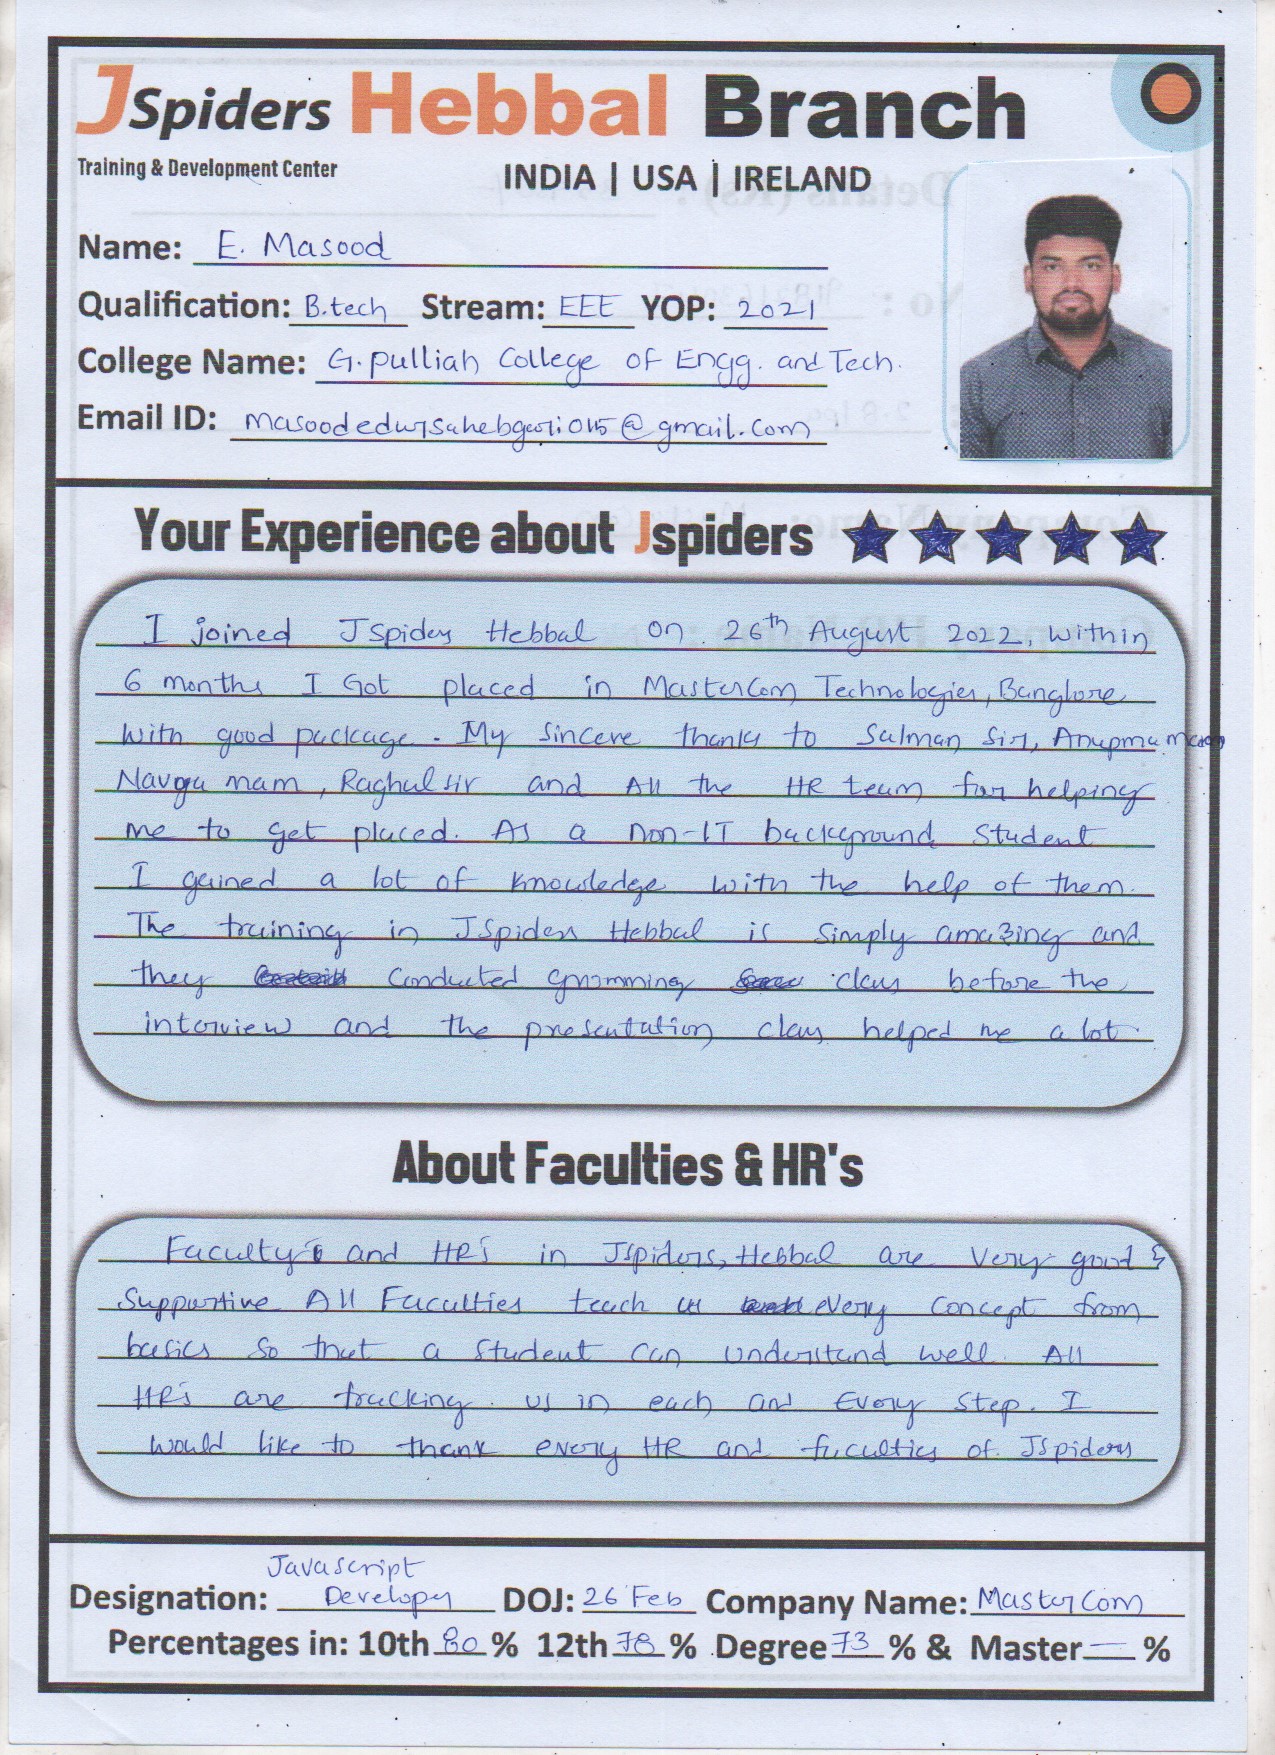 JSpiders Hebbal Branch
Training & Development Center
INDIA | USA | IRELAND
Name: E. Masood
Qualification: B.tech Stream: EEE YOP: 2021
College Name: G. pulliah College of Engg. and Tech.
Email ID:
Your Experience about Jspiders
I joined JSpiders Hebbal on 26th August 2022, within
6 months I Got placed in Mastercom Technologies, Banglore
with good package. My sincere thanks to Salman Sir, Anupma mam
Navya mam, Raghul sir and All the HR team for helping
me to get placed. As a non-IT background Student
I gained a lot of knowledge with the help of them.
The training in JSpiders Hebbal is simply amazing and
they conducted class before the
interview and the presentation class helped me a lot.
About Faculties & HR's
Faculty's and HR's in Jspiders, Hebbal are very good &
Supportive All Faculties teach us every concept from
basics so that a student can understand well. All
HR's are tracking us in each and Every step. I
would like to thank every HR and faculties of JSpiders
Javascript
Designation: Developer DOJ: 26 Feb Company Name: MasterCom
Percentages in: 10th 80 % 12th 78 % Degree 73 % & Master — %